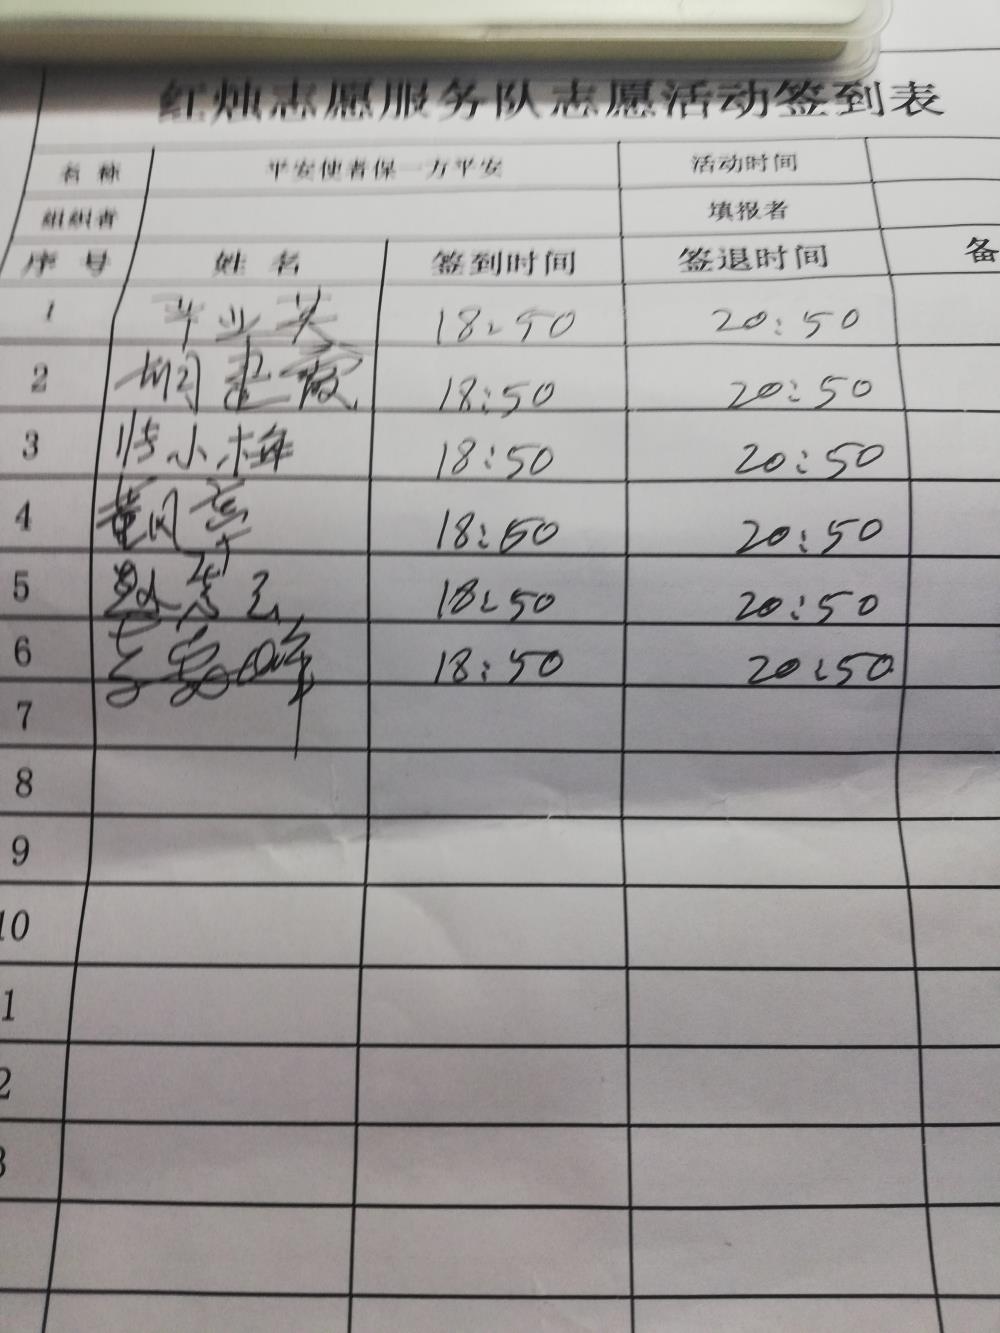 红烛志愿服务队志愿活动签到表
名称 平安使者保一方平安 活动时间
组织者 填报者
序号 姓名 签到时间 签退时间 备
1 18:50 20:50
2 18:50 20:50
3 张小梅 18:50 20:50
4 18:50 20:50
5 18:50 20:50
6 18:50 20:50
7
8
9
10
1
2
3